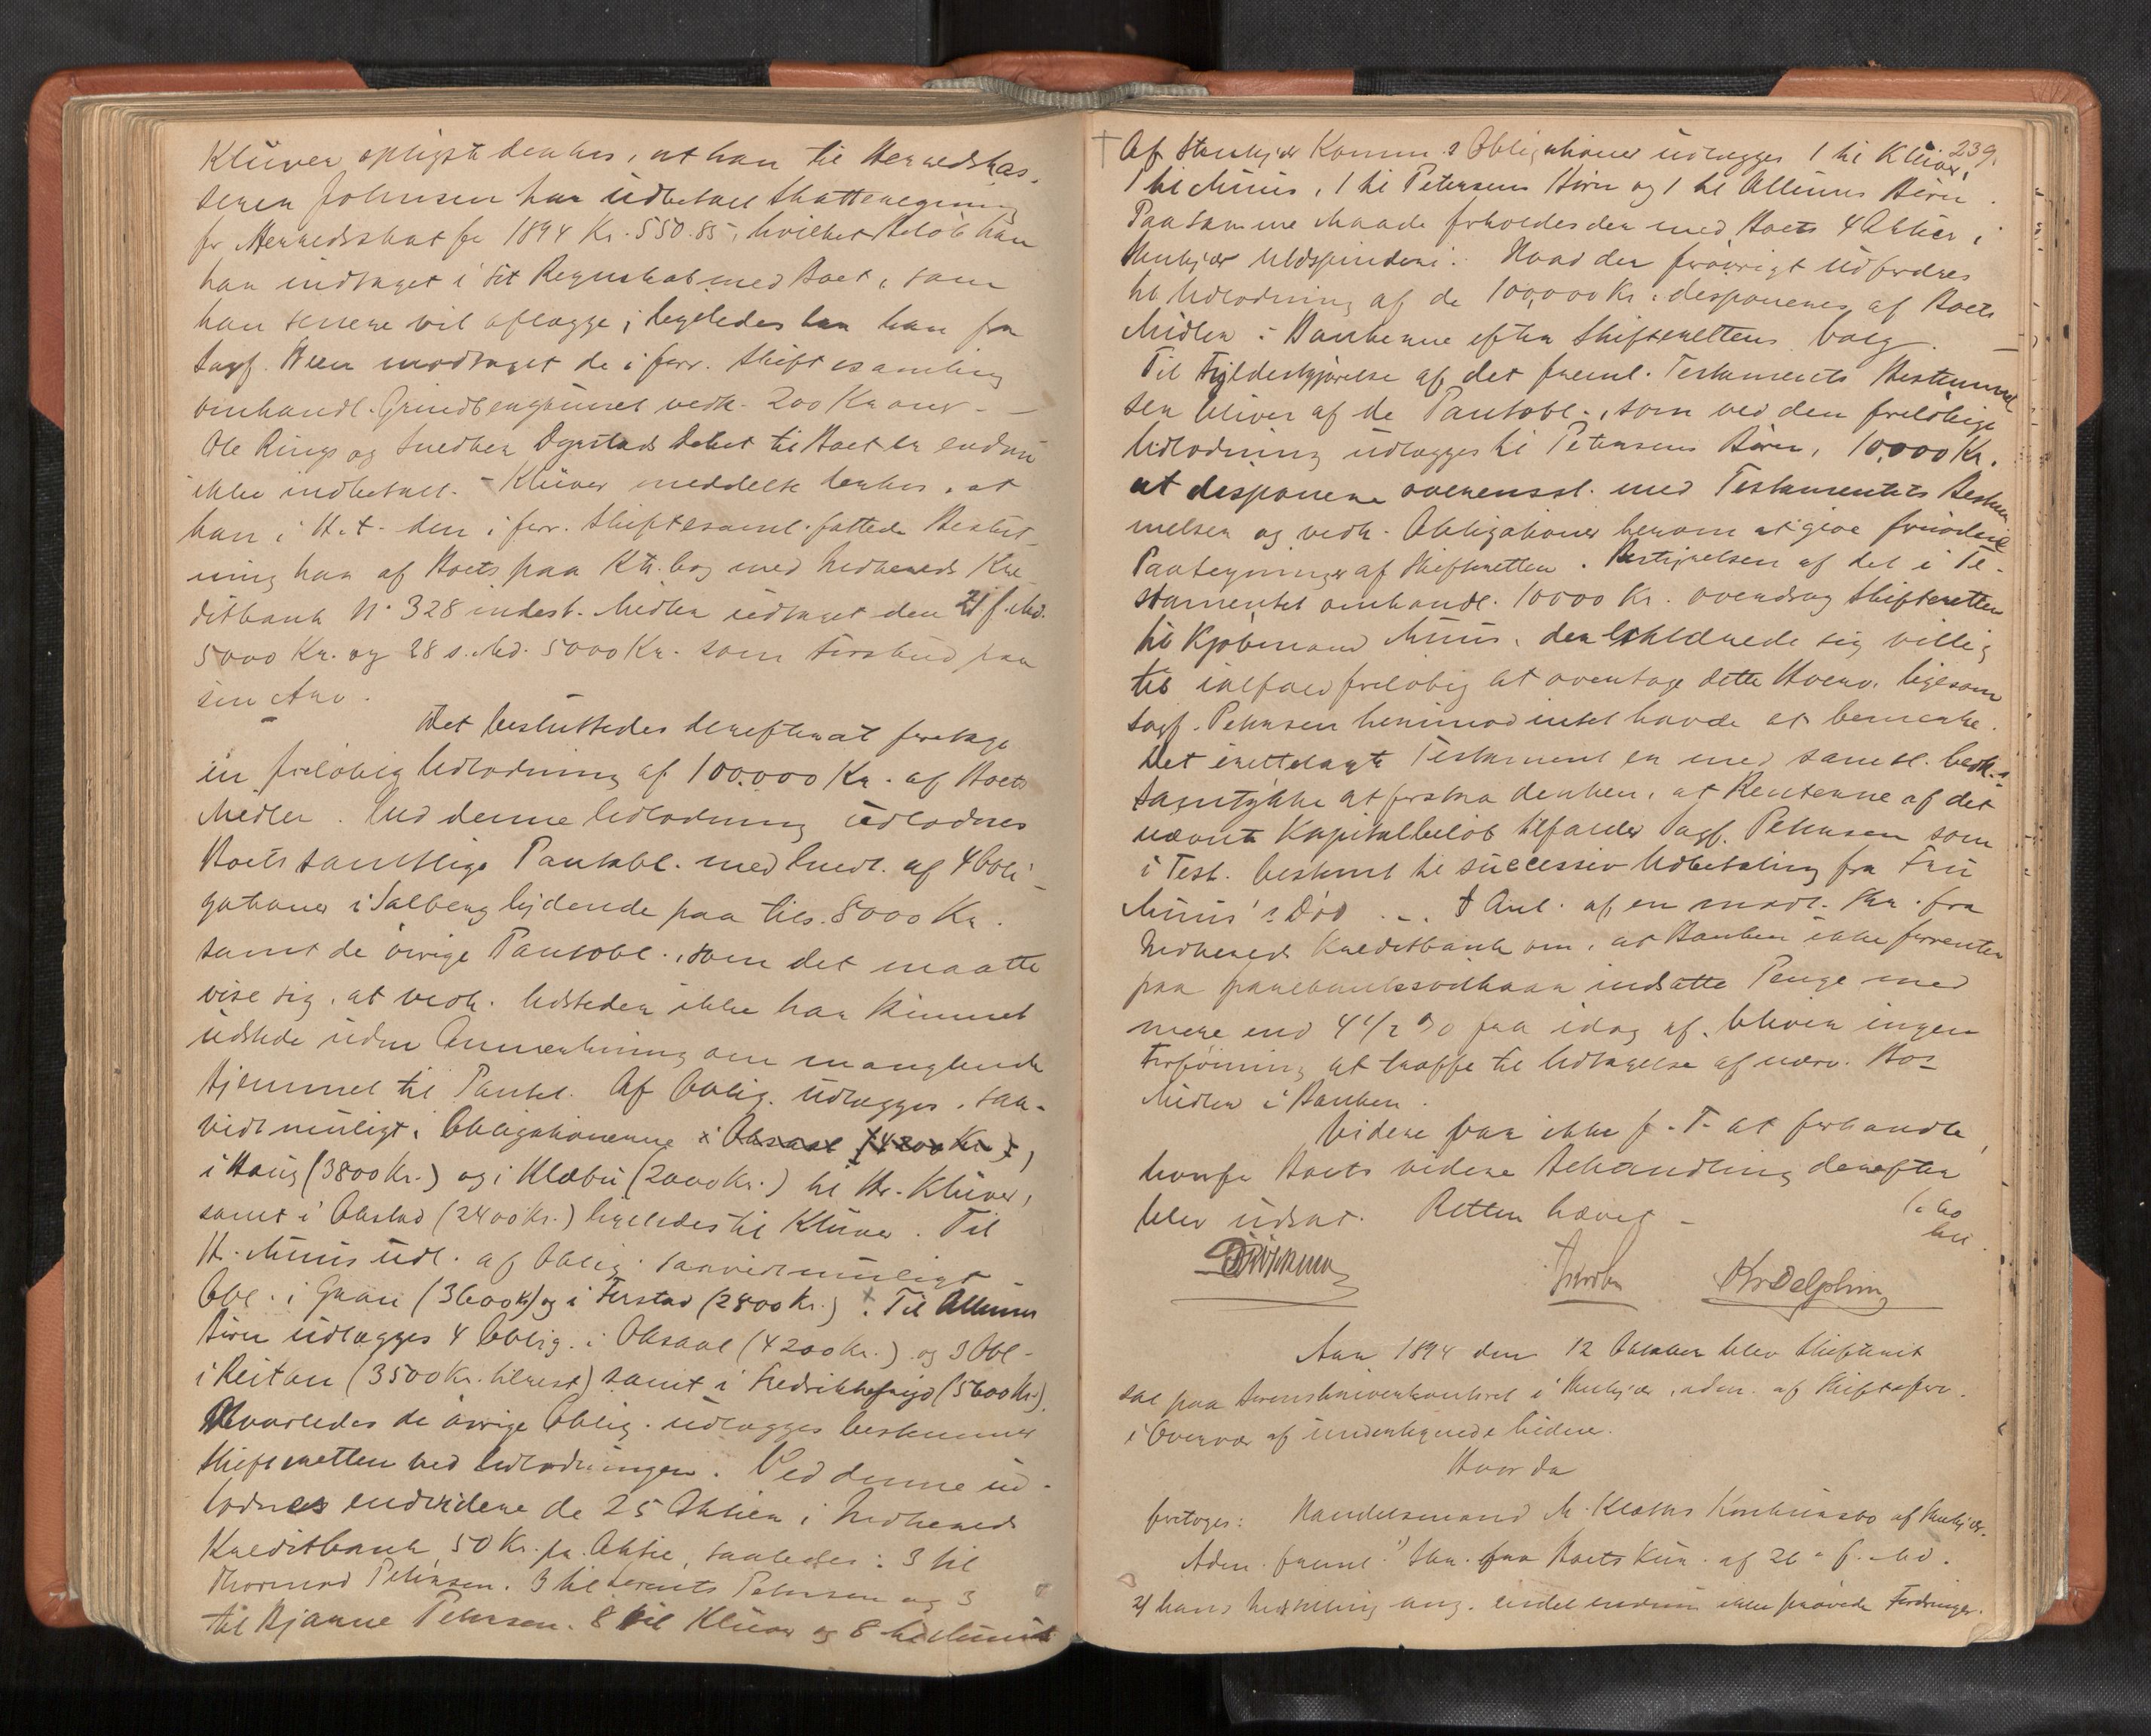 Klüver oplyste derhos, at han til Herredskas-
serer Johnsen har udbetalt Skatteregning
for Herredsskat for 1894 Kr. 550.85, hvilket Beløb han
har indtaget i sit Regnskab med Boet, som
han senere vil aflægge; ligeledes har han fra
Sagf. Ween modtaget de i forr. Skiftesamling
omhandl. vedk. 200 Kroner. —
Ole Rings og Snedker Dyrstads Debet til Boet er endnu
ikke indbetalt. - Klüver meddelte derhos, at
han i H. t. den i forr. Skiftesaml. fattede Beslut-
ning har af Boets paa Ktr. bog med Indherreds Kre-
ditbank No 328 indest. Midler udtaget den 21 f. Md.
5000 Kr. og 28 s. Md. 5000 Kr. som Forskud paa
sin Arv.
Det besluttedes derefter at foretage
en foreløbig Udlodning af 100.000 Kr. af Boets
Midler. Ved denne Udlodning udlodnes
Boets samtlige Pantobl. med Undt. af 4 Obli-
gationer i Salberg lydende paa tils. 8000 Kr.
samt de øvrige Pantobl., som det maatte
vise sig, at vedk. Udsteder ikke har kunnet
udstede uden Anmerkning om manglende
Hjemmel til Pantet. Af Oblig. udlægges, saa-
vidt muligt, Obligationerne i Oksaal (4200 Kr.),
i Haug (3800 Kr.) og i Klæbu (2000 Kr.) til Hr. Klüver,
samt i Okstad (2400 Kr.) ligeledes til Klüver. Til
H. Muus udl. af Oblig. saavidt muligt
Obl. i Graan (3600 Kr) og i Forstad (2800 Kr.). Til Allums
Børn udlægges 4 Oblig. i Oksaal (4200 Kr.) og 3 Obl.
i Reitan (3500 Kr. tilrest) samt i (5600 Kr.).
Hvorledes de øvrige Oblig. udlægges bestemmer
Skifteretten ved Udlodningen. Ved denne ud-
lodnes endvidere de 25 Aktier i Indherreds
Kreditbank, 50 Kr. pr. Aktie, saaledes: 3 til
Thormod Petersen, 3 til Lorents Petersen og 3
til Bjarne Petersen. 8 til Klüver og 8 til Muus
239.
† Af Stenkjær Komm.s Obligationer udlægges 1 til Klüver,
1 til Muus, 1 til Petersens Børn og 1 til Allums Børn.
Paa samme Maade forholdes der med Boets 4 Aktier i
Stenkjær Uldspinderi. Hvad der forøvrigt udfordres
til Udlodning af de 100,000 Kr. disponeres af Boets
Midler i Bankerne efter Skifterettens Valg.
Til Fyldestgjørelse af det freml. Testaments Bestemmel-
ser bliver af de Pantobl., som ved den foreløbige
Udlodning udlægges til Petersens Børn, 10,000 Kr.
at disponere overensst. med Testamentets Bestem-
melser og vedk. Obligationer herom at give fornøden
Paategninger af Skifteretten. Bestyrelsen af det i Te-
stamentet omhandl. 10000 Kr. overdrog Skifteretten
til Kjøbmand Muus, der erklærede sig villig
til ialfald foreløbig at overtage dette Hverv, ligesom
Sagf. Petersen herimod intet havde at bemerke.
Det irettelagte Testament er med samtl. vedk.s
Samtykke at forstaa derhen, at Renterne af det
nævnte Kapitalbeløb tilfalder Sagf. Petersen som
i Test. bestemt til successiv Udbetaling fra Fru
Muus's Død. — I Anl. af en modt. Skr. fra
Indherreds Kreditbank om, at Banken ikke forrenter
paa indsatte Penge med
mere end 4 1/2 % fra idag af, bliver ingen
Forføining at træffe til Udtagelse af nærv. Bos
Midler i Banken.
Videre var ikke p. T. at forhandle,
hvorfor Boets videre Behandling derefter
blev udsat. Retten hævet —
Kr. Delphin
Aar 1894 den 12 Oktober blev Skifteret
sat paa Sorenskriverkontoret i Stenkjær, adm. af Skifteforv.
i Overvær af undertegnede Vidner.
Hvor da
foretoges: Handelsmand M. Klæbus Konkursbo af Stenkjær.
Adm. freml. 1) Skr. fra Boets Kur. af 26 f. Md.
2) hans Indstilling ang. endel endnu ikke prøvede Fordringer.